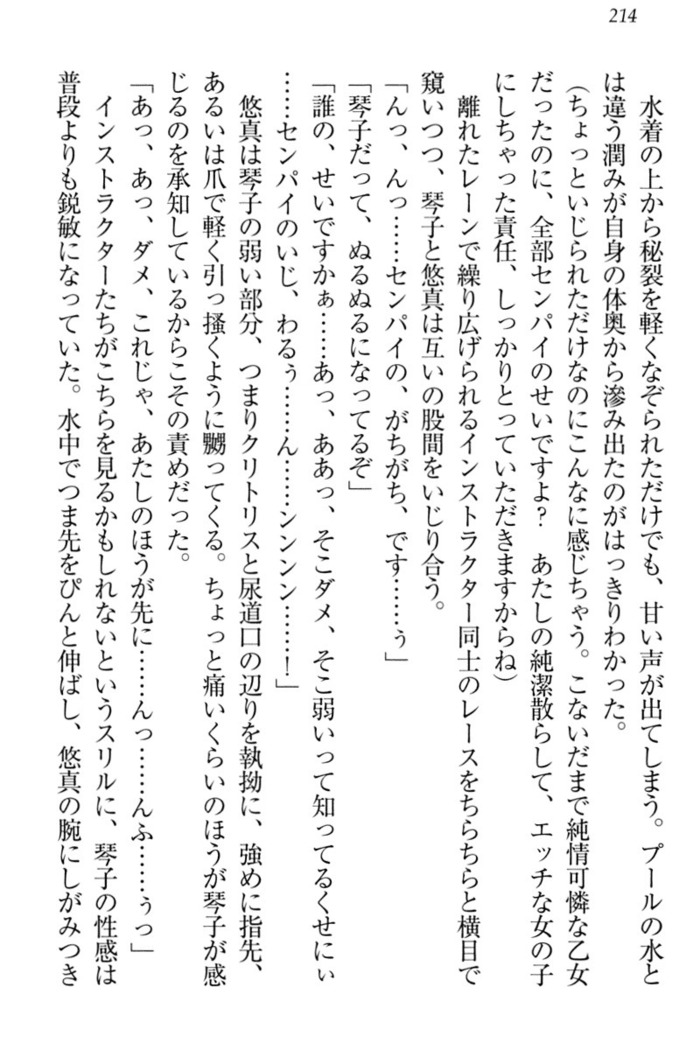 214
水着の上から秘裂を軽くなぞられただけでも、甘い声が出てしまう。プールの水と
は違う潤みが自身の体奥から滲み出たのがはっきりわかった。
(ちょっといじられただけなのにこんなに感じちゃう。こないだまで純情可憐な乙女
だったのに、全部センパイのせいですよ? あたしの純潔散らして、エッチな女の子
にしちゃった責任、しっかりとっていただきますからね)
離れたレーンで繰り広げられるインストラクター同士のレースをちらちらと横目で
窺いつつ、琴子と悠真は互いの股間をいじり合う。
「んっ、んっ……センパイの、がちがち、です……ぅ」
「琴子だって、ぬるぬるになってるぞ」
「誰の、せいですかぁ……あっ、ああっ、そこダメ、そこ弱いって知ってるくせにぃ
……センパイのいじ、わるぅ……ん……ンンンン……!」
悠真は琴子の弱い部分、つまりクリトリスと尿道口の辺りを執拗に、強めに指先、
あるいは爪で軽く引っ掻くように嬲ってくる。ちょっと痛いくらいのほうが琴子が感
じるのを承知しているからこその責めだった。
「あっ、あっ、ダメ、これじゃ、あたしのほうが先に……んっ……んふ……ぅっ」
インストラクターたちがこちらを見るかもしれないというスリルに、琴子の性感は
普段よりも鋭敏になっていた。水中でつま先をぴんと伸ばし、悠真の腕にしがみつき